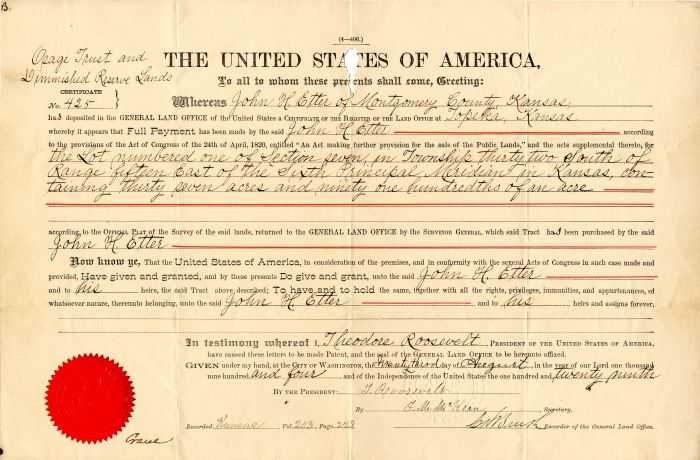 B.
(4—406.)
Osage Trust and
Diminished Reserve Lands
THE UNITED STATES OF AMERICA,
To all to whom these presents shall come, Greeting:
CERTIFICATE
No. 425 }
Whereas John H. Etter of Montgomery County, Kansas
has deposited in the GENERAL LAND OFFICE of the United States a CERTIFICATE OF THE REGISTER OF THE LAND OFFICE AT Topeka, Kansas
whereby it appears that Full Payment has been made by the said John H Etter according
to the provisions of the Act of Congress of the 24th of April, 1820, entitled "An Act making further provision for the sale of the Public Lands," and the acts supplemental thereto, for
the Lot numbered one of Section seven, in Township thirty two South of
Range fifteen East of the Sixth Principal Meridian in Kansas, con-
taining thirty seven acres and ninety one hundredths of an acre
according to the OFFICIAL PLAT of the Survey of the said lands, returned to the GENERAL LAND OFFICE by the SURVEYOR GENERAL, which said Tract has been purchased by the said
John H. Etter
Now know ye, That the United States of America, in consideration of the premises, and in conformity with the several Acts of Congress in such case made and
provided, Have given and granted, and by these presents Do give and grant, unto the said John H. Etter
and to his heirs, the said Tract above described; To have and to hold the same, together with all the rights, privileges, immunities, and appurtenances, of
whatsoever nature, thereunto belonging, unto the said John H. Etter and to his heirs and assigns forever,
In testimony whereof I, Theodore Roosevelt, PRESIDENT OF THE UNITED STATES OF AMERICA,
have caused these letters to be made Patent, and the seal of the GENERAL LAND OFFICE to be hereunto affixed.
GIVEN under my hand, at the CITY OF WASHINGTON, the twenty third day of August, in the year of our Lord one thousand
nine hundred and four, and of the Independence of the United States the one hundred and twenty ninth
BY THE PRESIDENT: T. Roosevelt
By F. M. McKean, Secretary,
Recorded Kansas Vol. 203, Page 228
Recorder of the General Land Office.